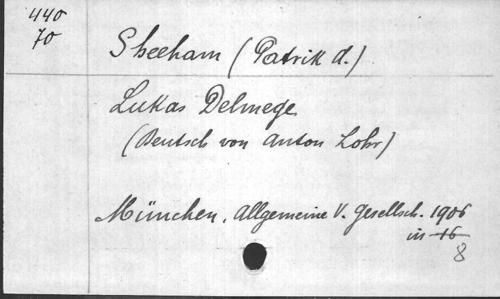 440
70
Sheeham (Patrik d.)
Lukas Delmege
(Deutsch von Anton Lohr)
München, Allgemeine V. Gesellsch. 1906
in 16
8